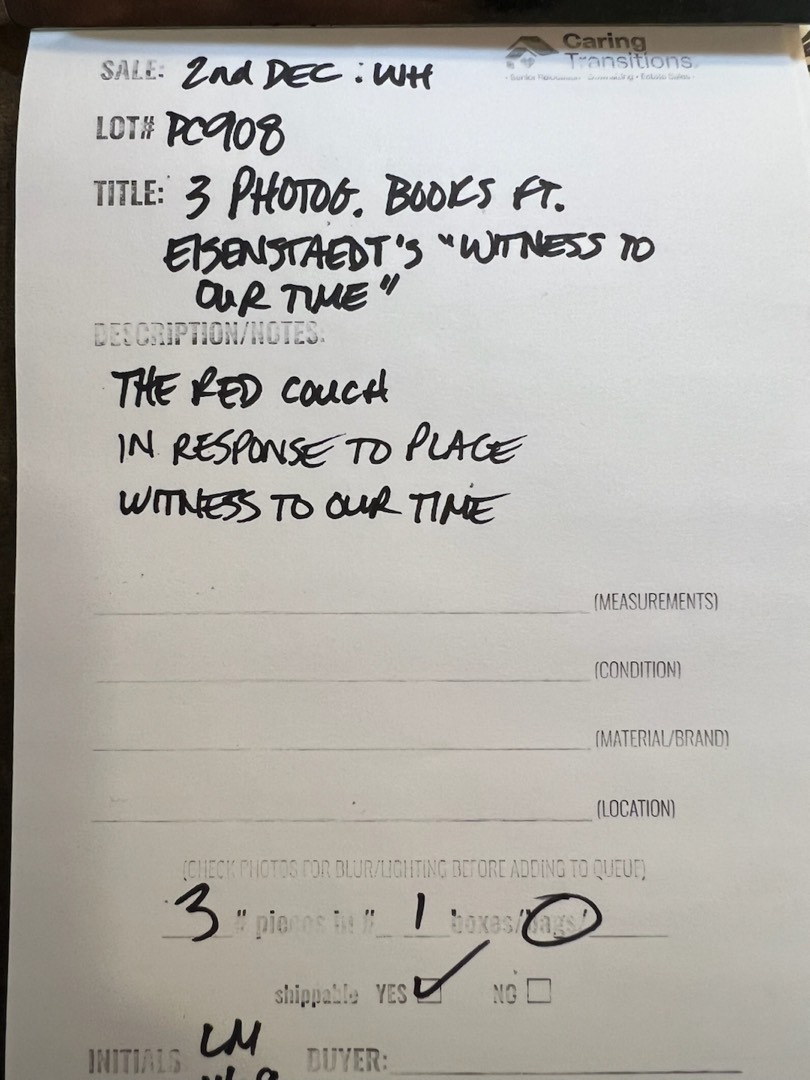 Caring
Transitions.
SALE: 2nd DEC : WH
LOT# PC908
TITLE: 3 PHOTOG. BOOKS FT.
EISENSTAEDT'S "WITNESS TO
OUR TIME"
DESCRIPTION/NOTES:
THE RED COUCH
IN RESPONSE TO PLACE
WITNESS TO OUR TIME
(MEASUREMENTS)
(CONDITION)
(MATERIAL/BRAND)
(LOCATION)
(CHECK PHOTOS FOR BLUR/LIGHTING BEFORE ADDING TO QUEUE)
3 # pieces in # 1 boxes/bags/
shippable YES NO
INITIALS LM BUYER: